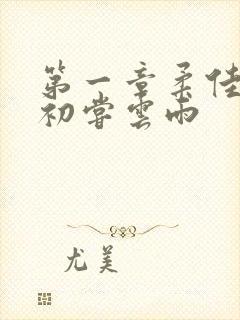 第一章柔佳
初嘗雲雨
尤美